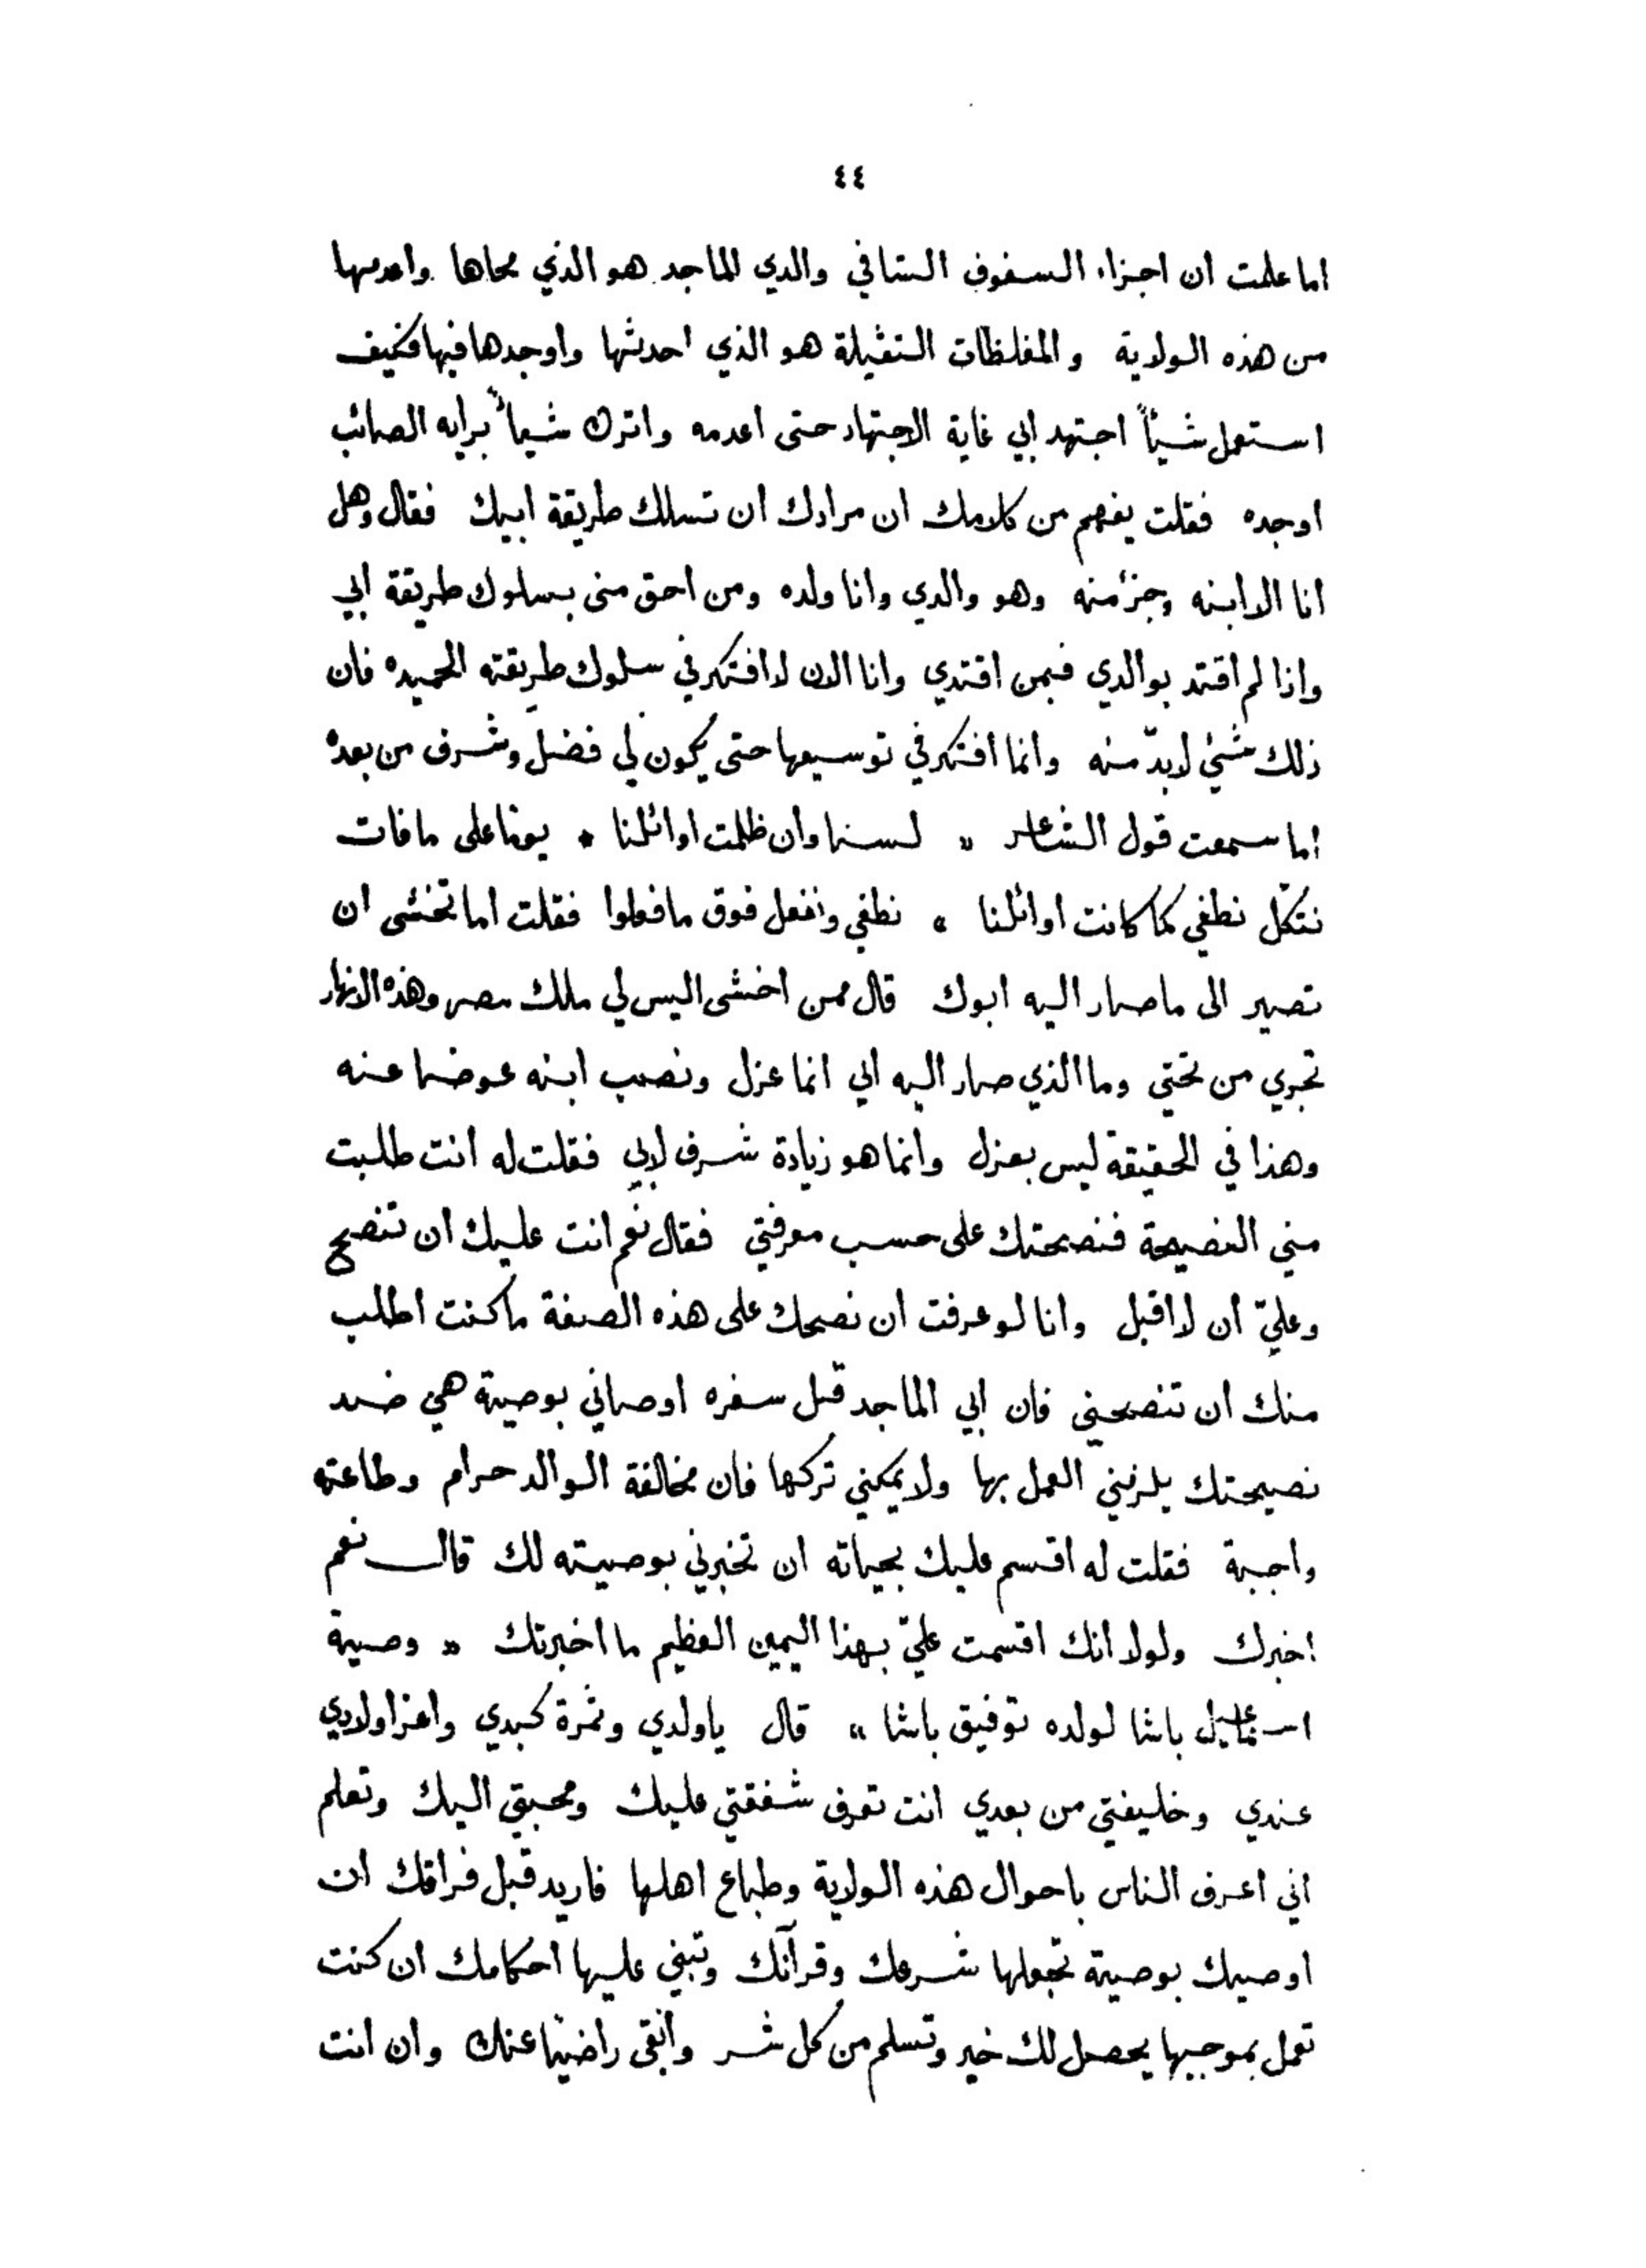 ٤٤
اما علمت ان اجزاء السفوف الشافي والدي الماجد هو الذي محاها واعدمها
من هذه الولاية والمغلظات الثقيلة هو الذي احدثها واوجدها فيها فكيف
استعمل شيئاً اجتهد ابي غاية الاجتهاد حتى اعدمه واترك شيأً برايه الصائب
اوجده فقلت يفهم من كلامك ان مرادك ان تسلك طريقة ابيك فقال وهل
انا الا ابنه وجزء منه وهو والدي وانا ولده ومن احق منى بسلوك طريقة ابي
واذا لم اقتد بوالدي فبمن اقتدي وانا الان لا افتكر في سلوك طريقته الحميده فان
ذلك شئ لابدّ منه وانما افتكر في توسيعها حتى يكون لي فضل وشرف من بعده
اما سمعت قول الشاعر « لسنا وان ظلمت اوائلنا * يوما على ما فات
نتكل نطغي كما كانت اوائلنا * نطغي ونفعل فوق ما فعلوا فقلت اما تخشى ان
تصير الى ما صار اليه ابوك قال ممن اخشى اليس لي ملك مصر وهذه الانهار
تجري من تحتي وما الذي صار اليه ابي انما عزل ونصب ابنه عوضا عنه
وهذا في الحقيقة ليس بعزل وانما هو زيادة شرف لابي فقلت له انت طلبت
مني النصيحة فنصحتك على حسب معرفتي فقال نعم انت عليك ان تنصح
وعليّ ان لا اقبل وانا لو عرفت ان نصحك على هذه الصفة ما كنت اطلب
منك ان تنصحني فان ابي الماجد قبل سفره اوصاني بوصية هي ضد
نصيحتك يلزمني العمل بها ولا يمكني تركها فان مخالفة الوالد حرام وطاعته
واجبة فقلت له اقسم عليك بحياته ان تخبرني بوصيته لك قال نعم
اخبرك ولولا انك اقسمت عليّ بهذا اليمين العظيم ما اخبرتك « وصية
اسماعيل باشا لولده توفيق باشا » قال ياولدي وثمرة كبدي واعز اولادي
عندي وخليفتي من بعدي انت تعرف شفقتي عليك ومحبتي اليك وتعلم
اني اعرف الناس باحوال هذه الولاية وطباع اهلها فاريد قبل فراقك ان
اوصيك بوصية تجعلها شرعك وقرآنك وتبني عليها احكامك ان كنت
تعمل بموجبها يحصل لك خير وتسلم من كل شر وابقى راضيا عنك وان انت